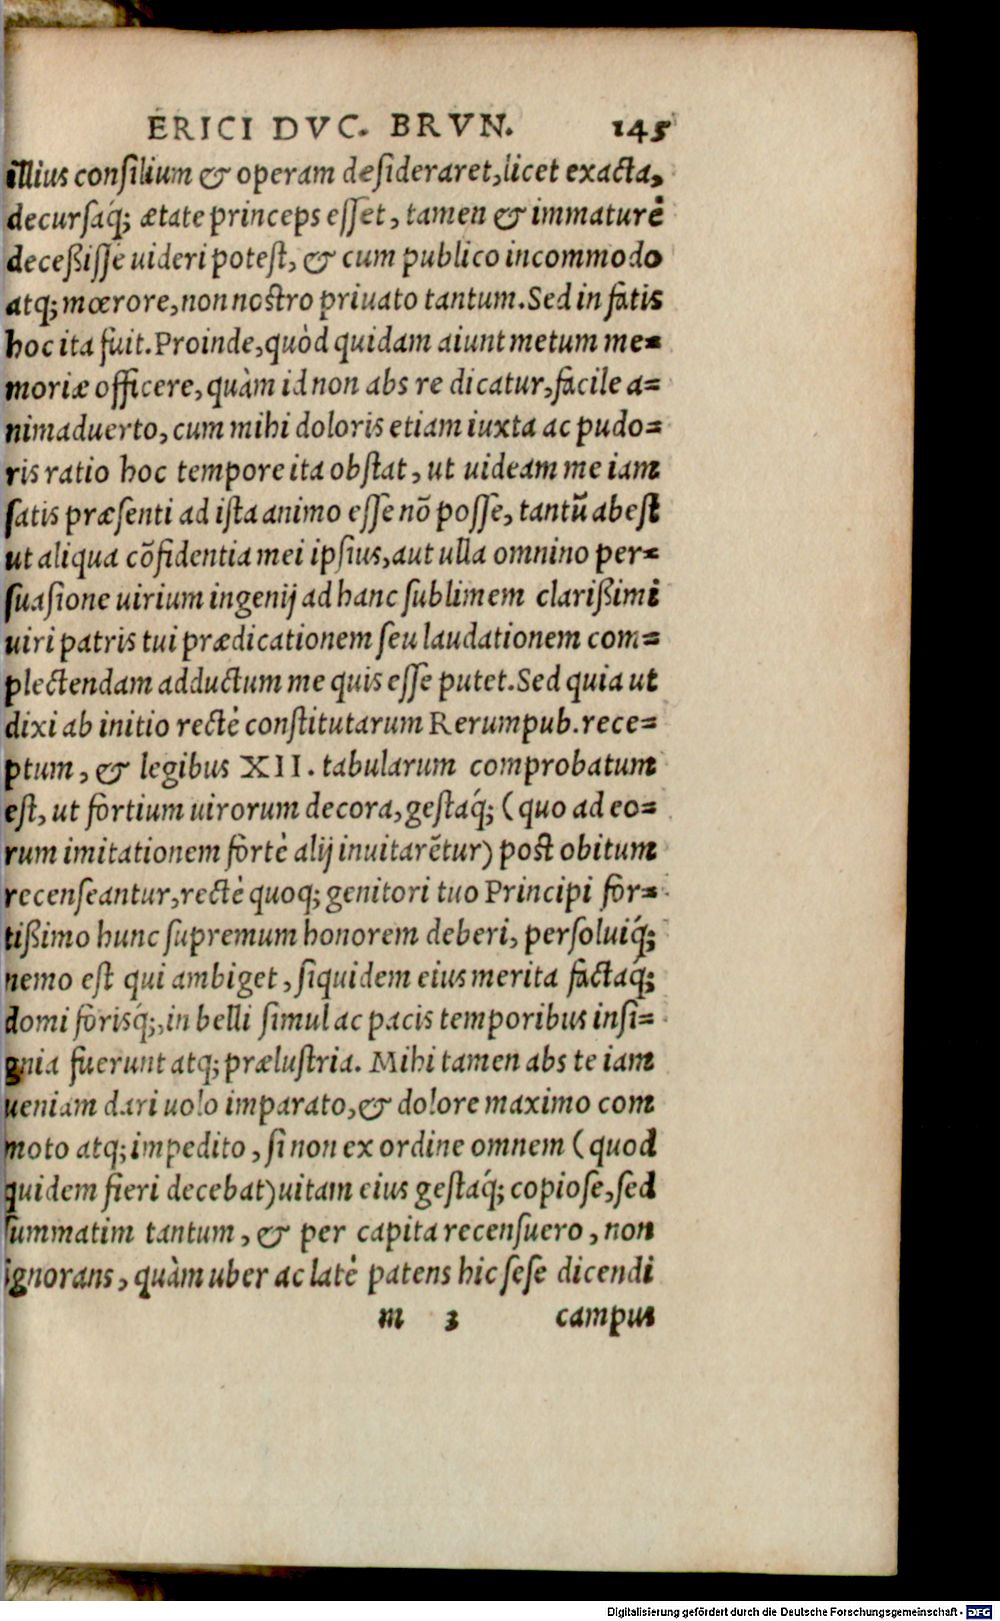 ERICI DVC. BRVN. 145
illius consilium & operam desideraret, licet exacta,
decursaq́; ætate princeps esset, tamen & immaturè
deceßisse uideri potest, & cum publico incommodo
atq; mœrore, non nostro priuato tantum. Sed in fatis
hoc ita fuit. Proinde, quòd quidam aiunt metum me=
moriæ officere, quàm id non abs re dicatur, facile a=
nimaduerto, cum mihi doloris etiam iuxta ac pudo=
ris ratio hoc tempore ita obstat, ut uideam me iam
satis præsenti ad ista animo esse nõ posse, tantũ abest
ut aliqua cõfidentia mei ipsius, aut ulla omnino per=
suasione uirium ingenij ad hanc sublimem clarißimi
uiri patris tui prædicationem seu laudationem com=
plectendam adductum me quis esse putet. Sed quia ut
dixi ab initio rectè constitutarum Rerumpub. rece=
ptum, & legibus XII. tabularum comprobatum
est, ut fortium uirorum decora, gestaq́; (quo ad eo=
rum imitationem fortè alij inuitarẽtur) post obitum
recenseantur, rectè quoq; genitori tuo Principi for=
tißimo hunc supremum honorem deberi, persoluiq́;
nemo est qui ambiget, siquidem eius merita factaq́;
domi forisq́;, in belli simul ac pacis temporibus insi=
gnia fuerunt atq; prælustria. Mihi tamen abs te iam
ueniam dari uolo imparato, & dolore maximo com
moto atq; impedito, si non ex ordine omnem (quod
quidem fieri decebat) uitam eius gestaq́; copiose, sed
summatim tantum, & per capita recensuero, non
ignorans, quàm uber ac latè patens hic sese dicendi
m 3 campus
Digitalisierung gefördert durch die Deutsche Forschungsgemeinschaft - DFG